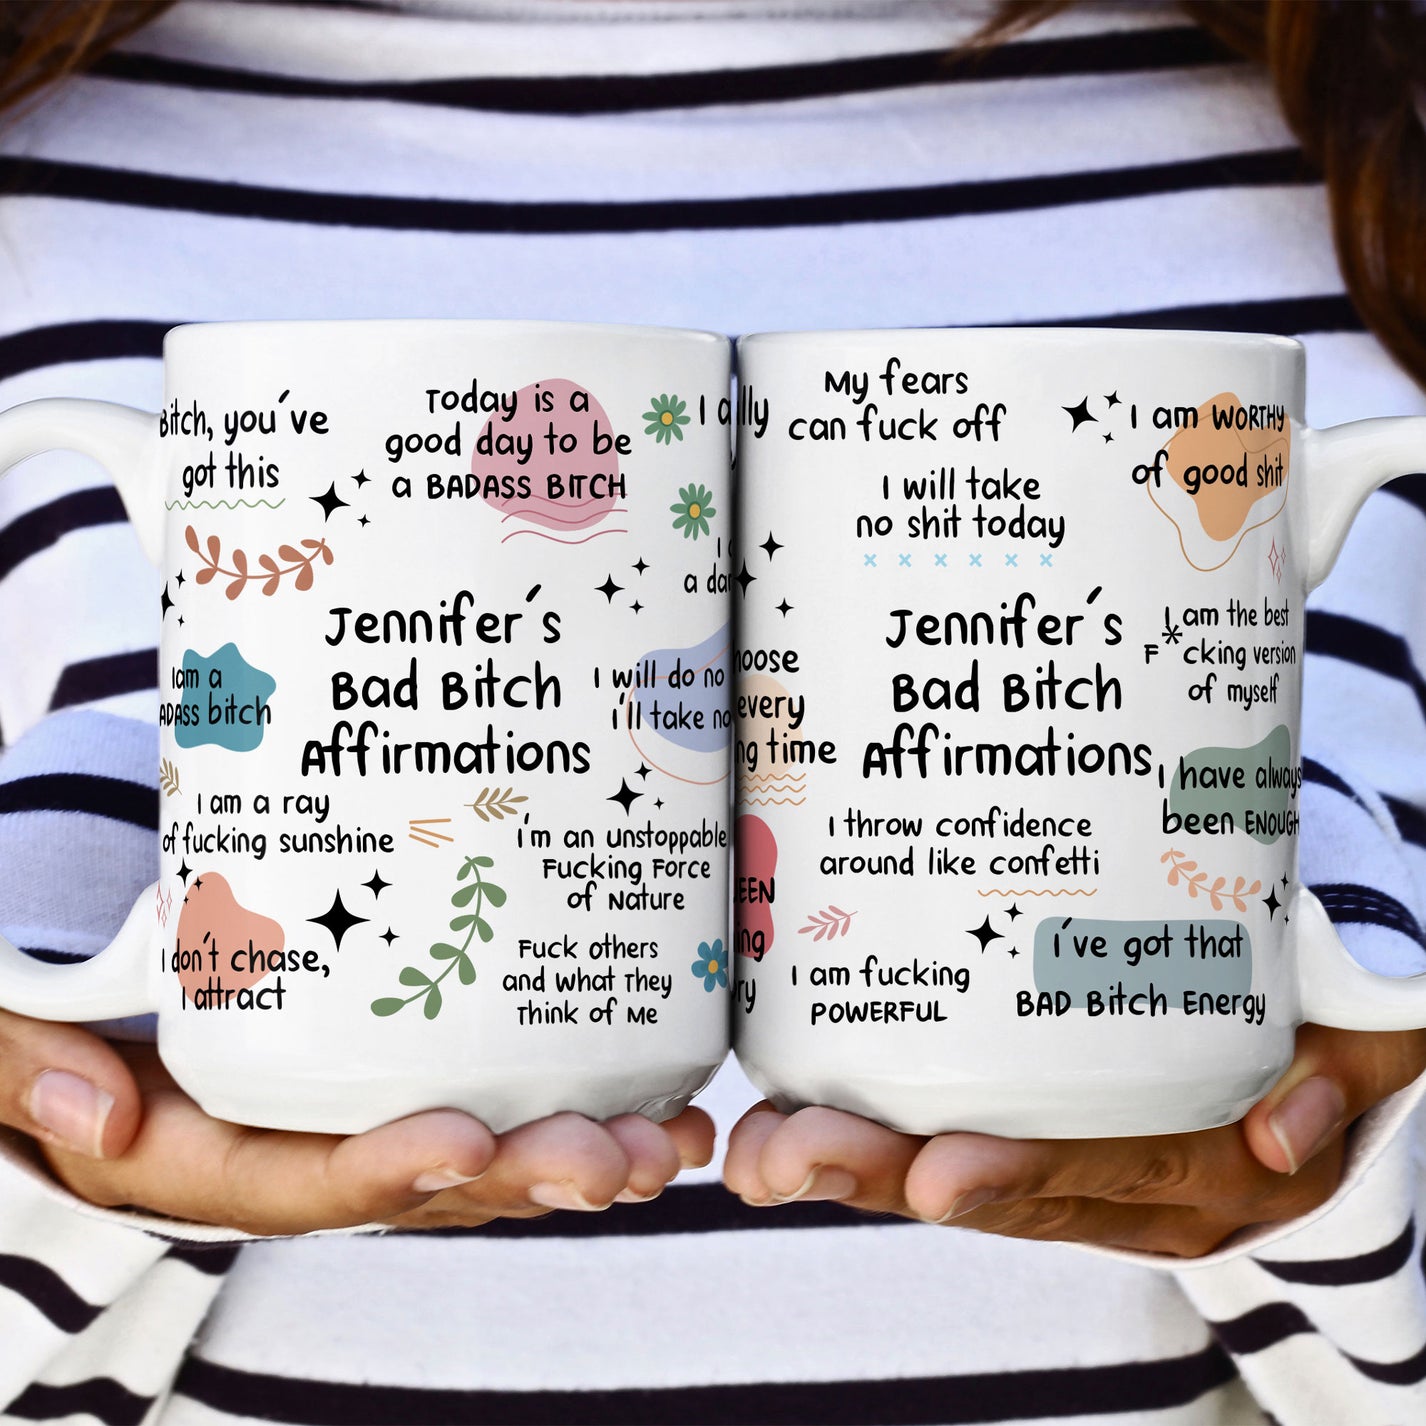 Bitch, you've
got this
Today is a
good day to be
a BADASS BITCH
I a
a dar
Jennifer's
Bad Bitch
Affirmations
I am a
ADASS bitch
I will do no
i'll take no
I am a ray
of fucking sunshine
i'm an unstoppable
Fucking Force
of Nature
I don't chase,
I attract
Fuck others
and what They
Think of Me
My fears
can fuck off
I will take
no shit today
I am WORTHY
of good shit
Jennifer's
Bad Bitch
Affirmations
I am the best
F*cking version
of myself
hoose
every
ng time
I have always
been ENOUGH
I throw confidence
around like confetti
EEN
ing
ry
I am fucking
POWERFUL
i've got that
BAD Bitch Energy